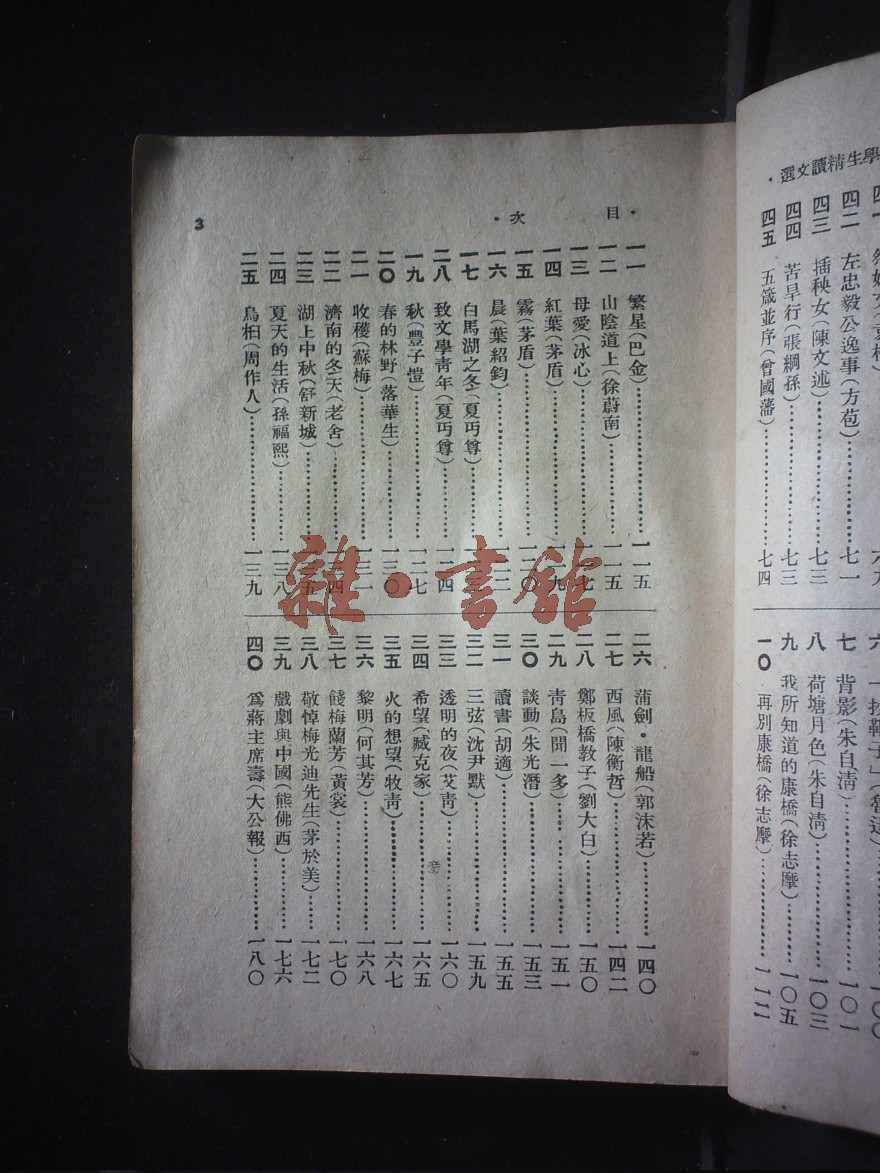 學生精讀文選·
四二 左忠毅公逸事(方苞)……七一
四三 插秧女(陳文述)……七三
四四 苦旱行(張綱孫)……七三
四五 五箴並序(曾國藩)……七四
七 背影(朱自清)……一〇一
八 荷塘月色(朱自清)……一〇三
九 我所知道的康橋(徐志摩)……一〇五
一〇 再別康橋(徐志摩)……一一二
·目 次·
3
一一 繁星(巴金)……一一五
一二 山陰道上(徐蔚南)……一一五
一三 母愛(冰心)……
一四 紅葉(茅盾)……
一五 霧(茅盾)……
一六 晨(葉紹鈞)……
一七 白馬湖之冬(夏丏尊)……
二八 致文學靑年(夏丏尊)……
一九 秋(豐子愷)……一二七
二〇 春的林野(落華生)……一三〇
二一 收穫(蘇梅)……一三一
二二 濟南的冬天(老舍)……
二三 湖上中秋(舒新城)……
二四 夏天的生活(孫福熙)……一三八
二五 烏桕(周作人)……一三九
二六 蒲劍·龍船(郭沫若)……一四〇
二七 西風(陳衡哲)……一四二
二八 鄭板橋教子(劉大白)……一五〇
二九 靑島(聞一多)……一五一
三〇 談動(朱光潛)……一五三
三一 讀書(胡適)……一五五
三二 三弦(沈尹默)……一五九
三三 透明的夜(艾靑)……一六〇
三四 希望(臧克家)……一六五
三五 火的想望(牧靑)……一六七
三六 黎明(何其芳)……一六八
三七 餞梅蘭芳(黃裳)……一七〇
三八 敬悼梅光迪先生(茅於美)……一七二
三九 戲劇與中國(熊佛西)……一七六
四〇 爲蔣主席壽(大公報)……一八〇
雜·書館